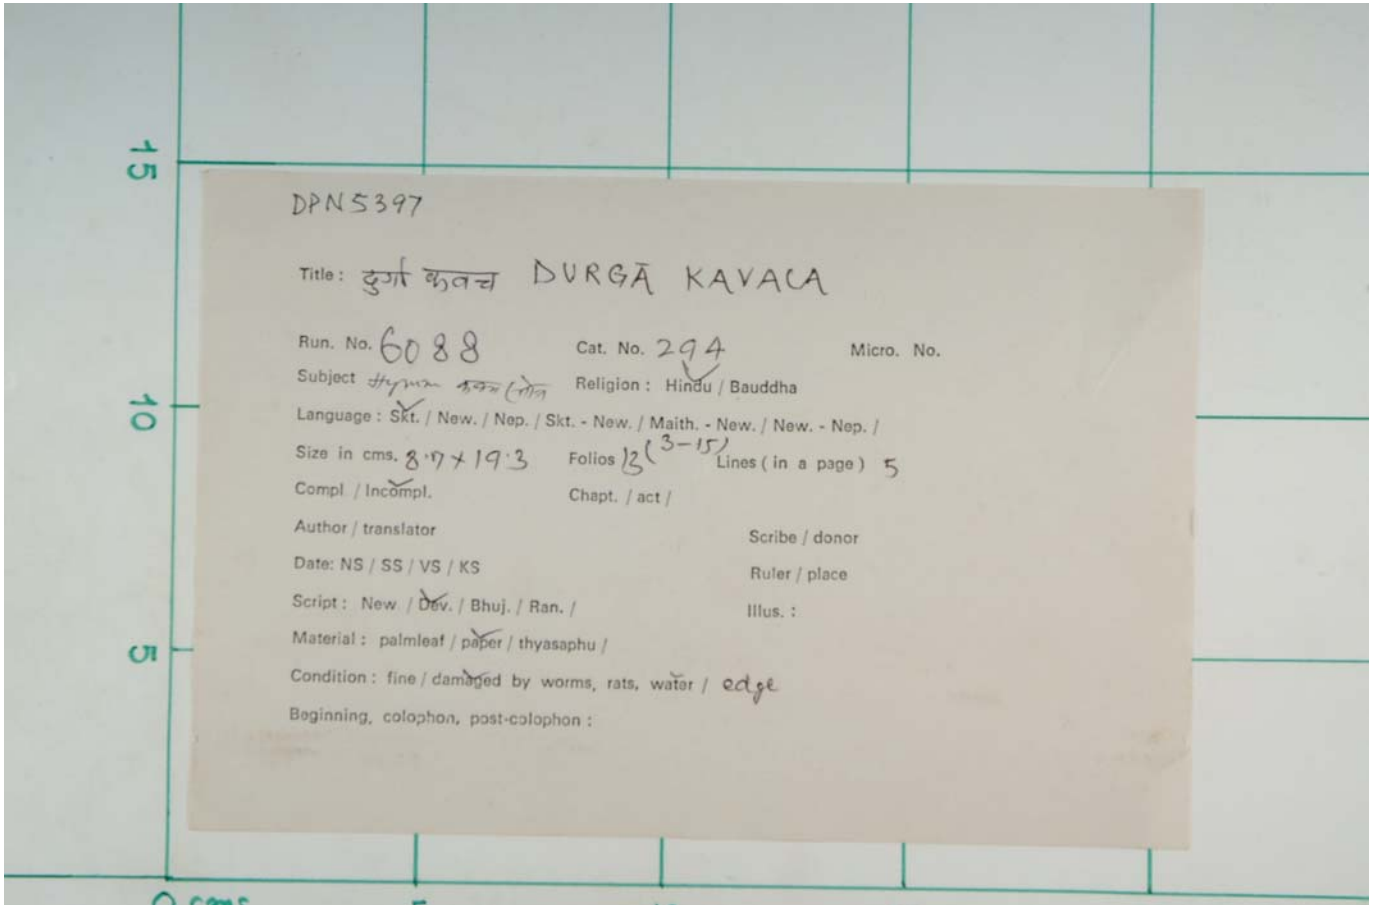 15
DPN5397
Title : दुर्गा कवच DURGĀ KAVACA
Run. No. 6088 Cat. No. 294 Micro. No.
Subject Hymn Religion : Hindu / Bauddha
10
Language : Skt. / New. / Nep. / Skt. - New. / Maith. - New. / New. - Nep. /
Size in cms. 8.7 x 19.3 Folios 13 (3-15) Lines ( in a page ) 5
Compl. / Incompl. Chapt. / act /
Author / translator Scribe / donor
Date: NS / SS / VS / KS Ruler / place
Script : New. / Dev. / Bhuj. / Ran. / Illus. :
Material : palmleaf / paper / thyasaphu /
5
Condition : fine / damaged by worms, rats, water / edge
Beginning, colophon, post-colophon :
0 cms